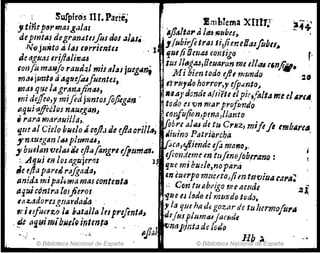 Suspiros III. Parte,
y tiñe por mas galas
de pintas de granates sus dos alas.
No junto à las corrientes
de aguas cristalinas
con su manso raudal mis alas juegan,
mas junto à aquestas fuentes,
mas que la grana finas,
mi desseo, y mi sed juntos sossiegan
aqui afectos nauegan,
ò rara marauilla,
que al Cielo buelo à costa de esta orilla,
y nauegan las plumas,
y buelan velas de esta sangre espumas.
Aqui en los agujeros 15
de esta pared rasgada,
anida mi paloma mas contenta
aqui contra los fieros
cazadores guardada
mi esfuerzo la batalla les presenta,
de aqui mi buelo intenta
Emblema XIII. 244
assaltar à las nubes,
y subirse tras ti, si ene essas subes,
que si Deuas contigo
tus llagas, lleuaràn me ellas consigo.
Mi bien todo este mundo 20
es ruydo horror, y espanto,
no ay donde assiste el pie, falta me el arca
todo es vn mar profundo
confusion, pena, llanto
sobre alas de tu Cruz, mi fe se embarca,
diuino Patriarcha
saca, estiende essa mano,
esconde me en tu seno soberano:
que mi buelo, no para
en cuerpo muerto, si en tu viua cara.
Con tu abrigo me atende 21
que es lodo el mundo todo,
y la que ha de gozar de tu hermosura
de sus plumas saeude
vna pinta de lodo
Hh
© Biblioteca Nacional de España
© Biblioteca Nacional de España